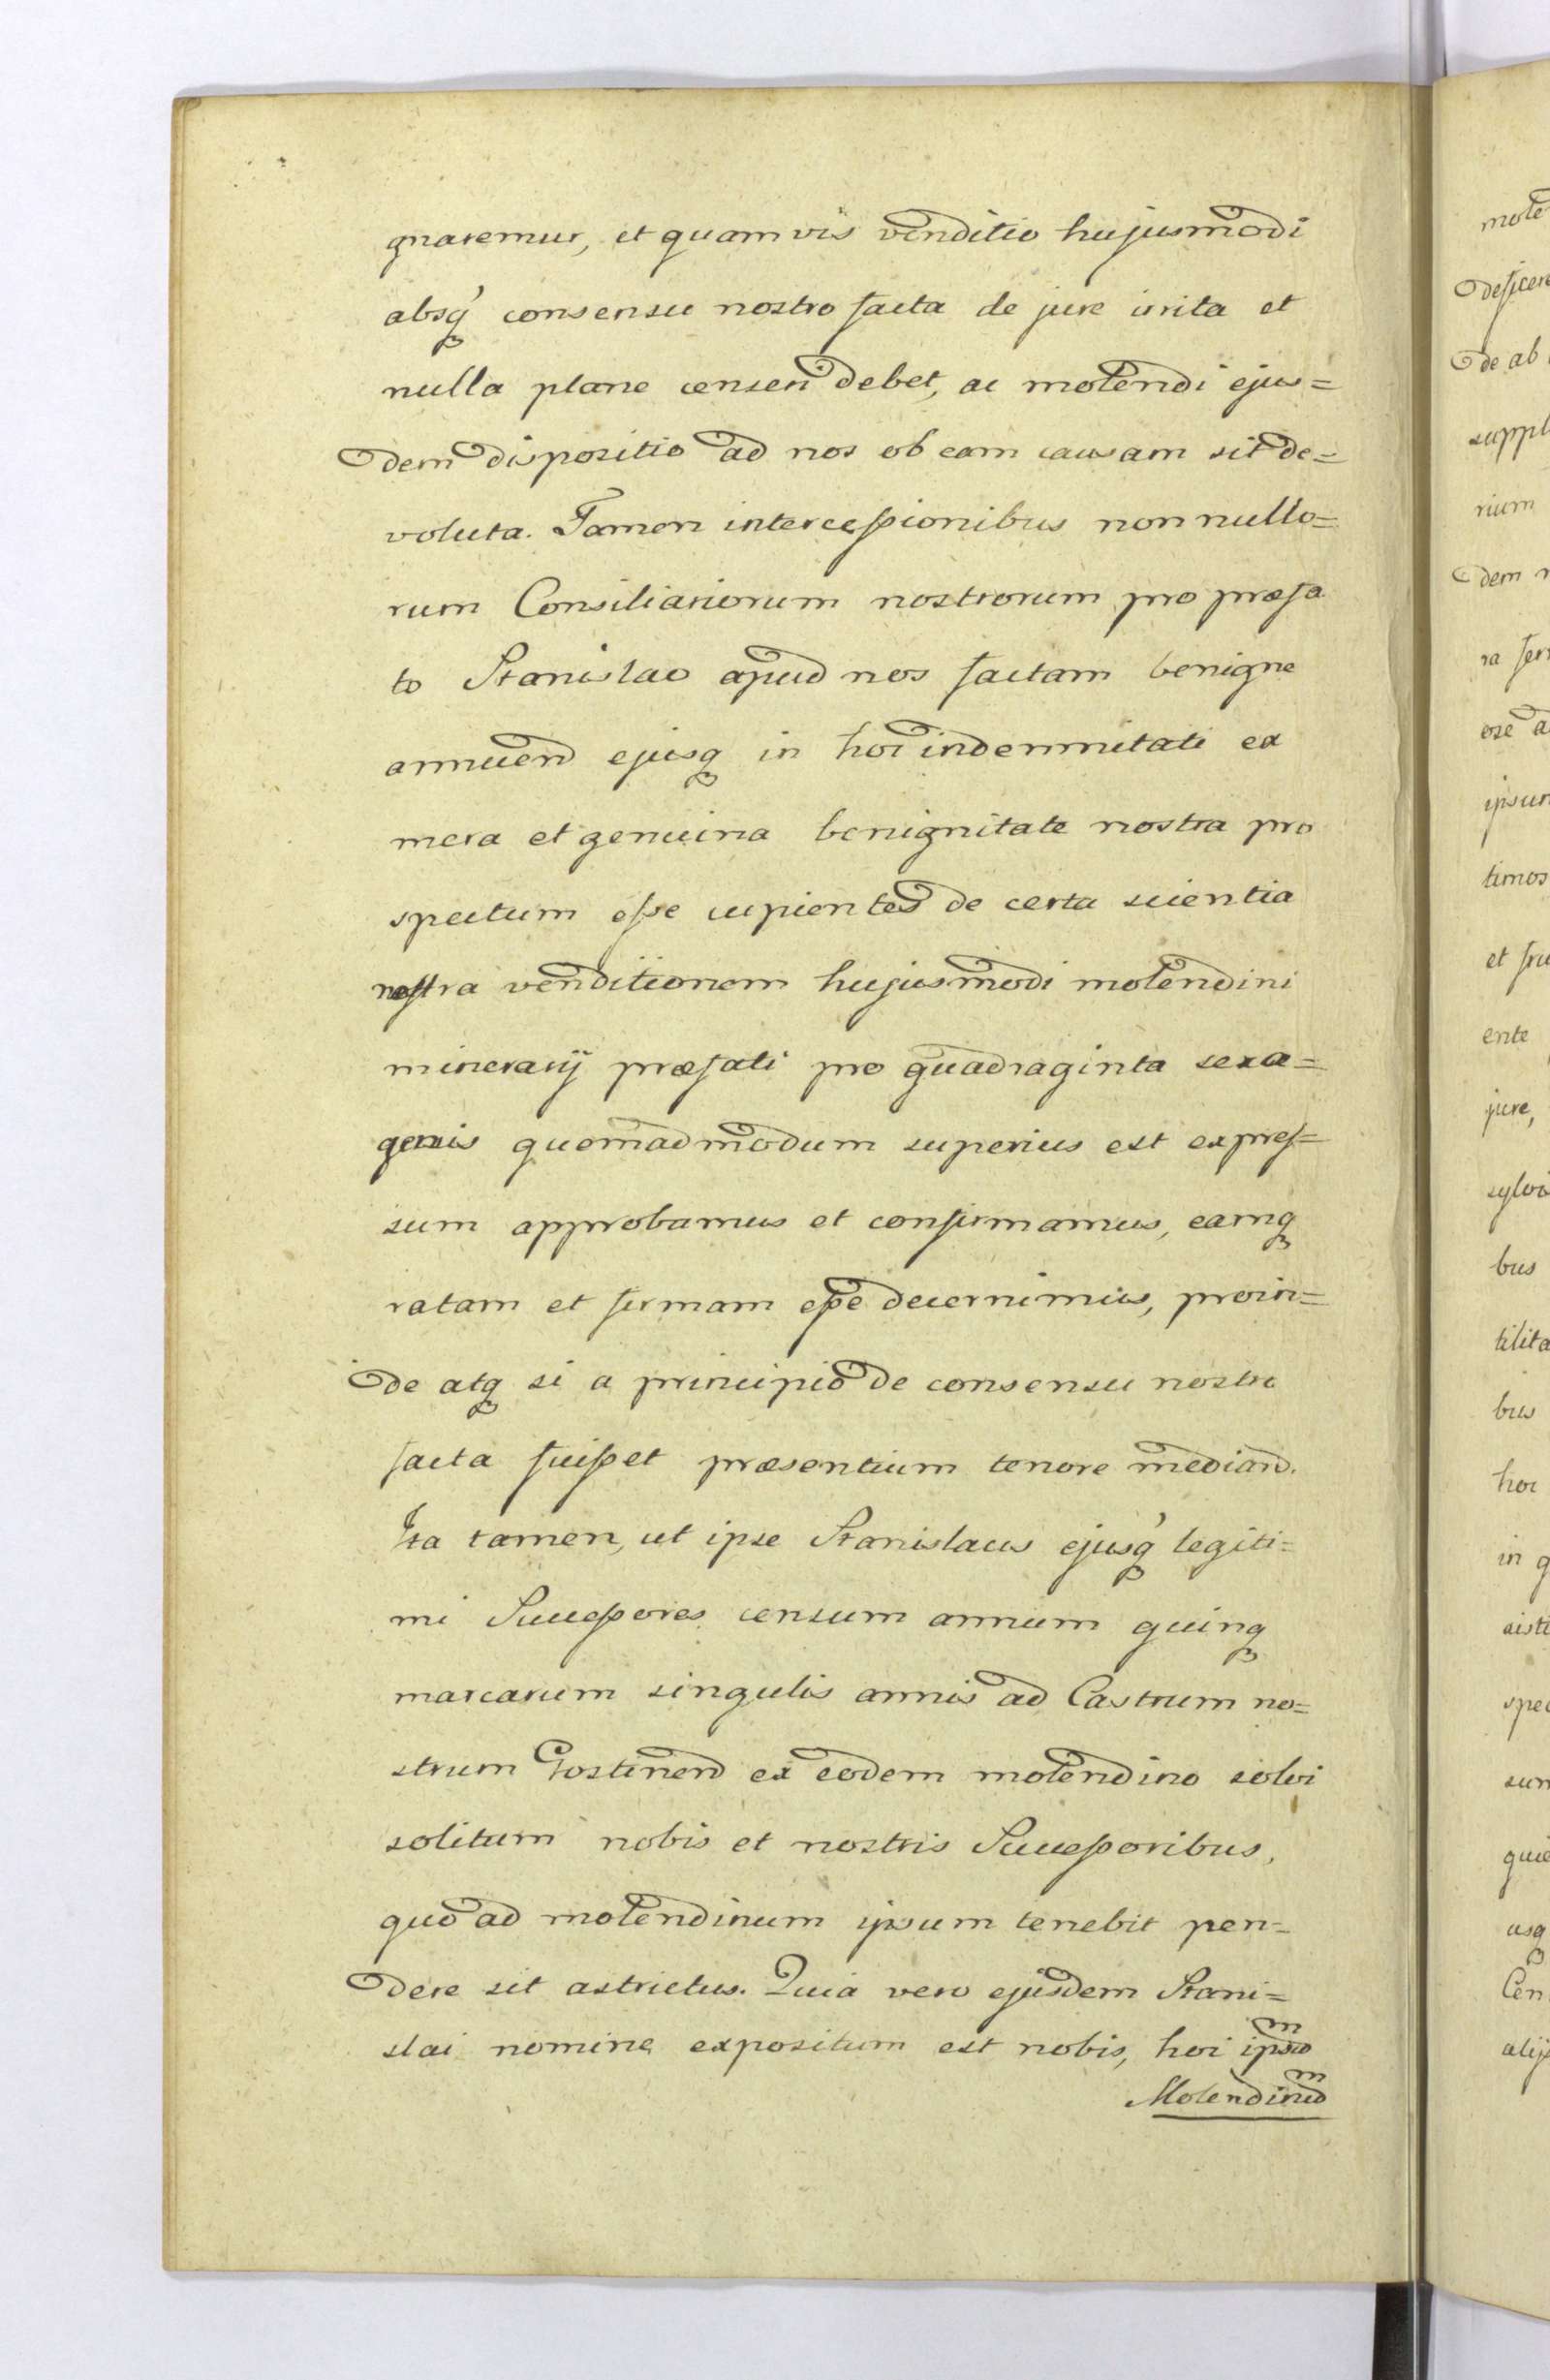 gnaremur, et quamvis venditio hujusmodi
absq́ consensu nostro facta de jure irrita et
nulla plane censeri debet, ac molendi ejus=
dem dispositio ad nos ob eam causam sit de=
voluta. Tamen intercessionibus nonnullo=
rum Consiliariorum nostrorum pro præfa
to Stanislao apud nos factam benigne
annuend ejusq in hoc indemnitati ex
mera et genuina benignitate nostra pro
spectum esse cupientes de certa scientia
nostra venditionem hujusmodi molendini
minerarij præfati pro quadraginta sexa=
genis quemadmodum superius est expres=
sum approbamus et confirmamus, eamq
ratam et firmam esse decernimus, proin=
de atq si a principio de consensu nostro
facta fuisset præsentium tenore mediand.
Ita tamen, ut ipse Stanislaus ejusq́ legiti=
mi Successores censum annum quinq
marcarum singulis annis ad Castrum no=
strum Gostinend ex eodem molendino solvi
solitum nobis et nostris Successoribus,
quo ad molendinum ipsum tenebit pen=
dere sit astrictus. Quia vero ejusdem Stani=
slai nomine expositum est nobis, hoc ipsum
Molendinum
mole
deficere
de ab
suppl
rium
dem
ra
ose a
ipsum
timos
et fru
ente
jure,
sylvi
bus
tilita
bus
hoc
in q
aisti
spec
sum
quie
usq
Cen
alij